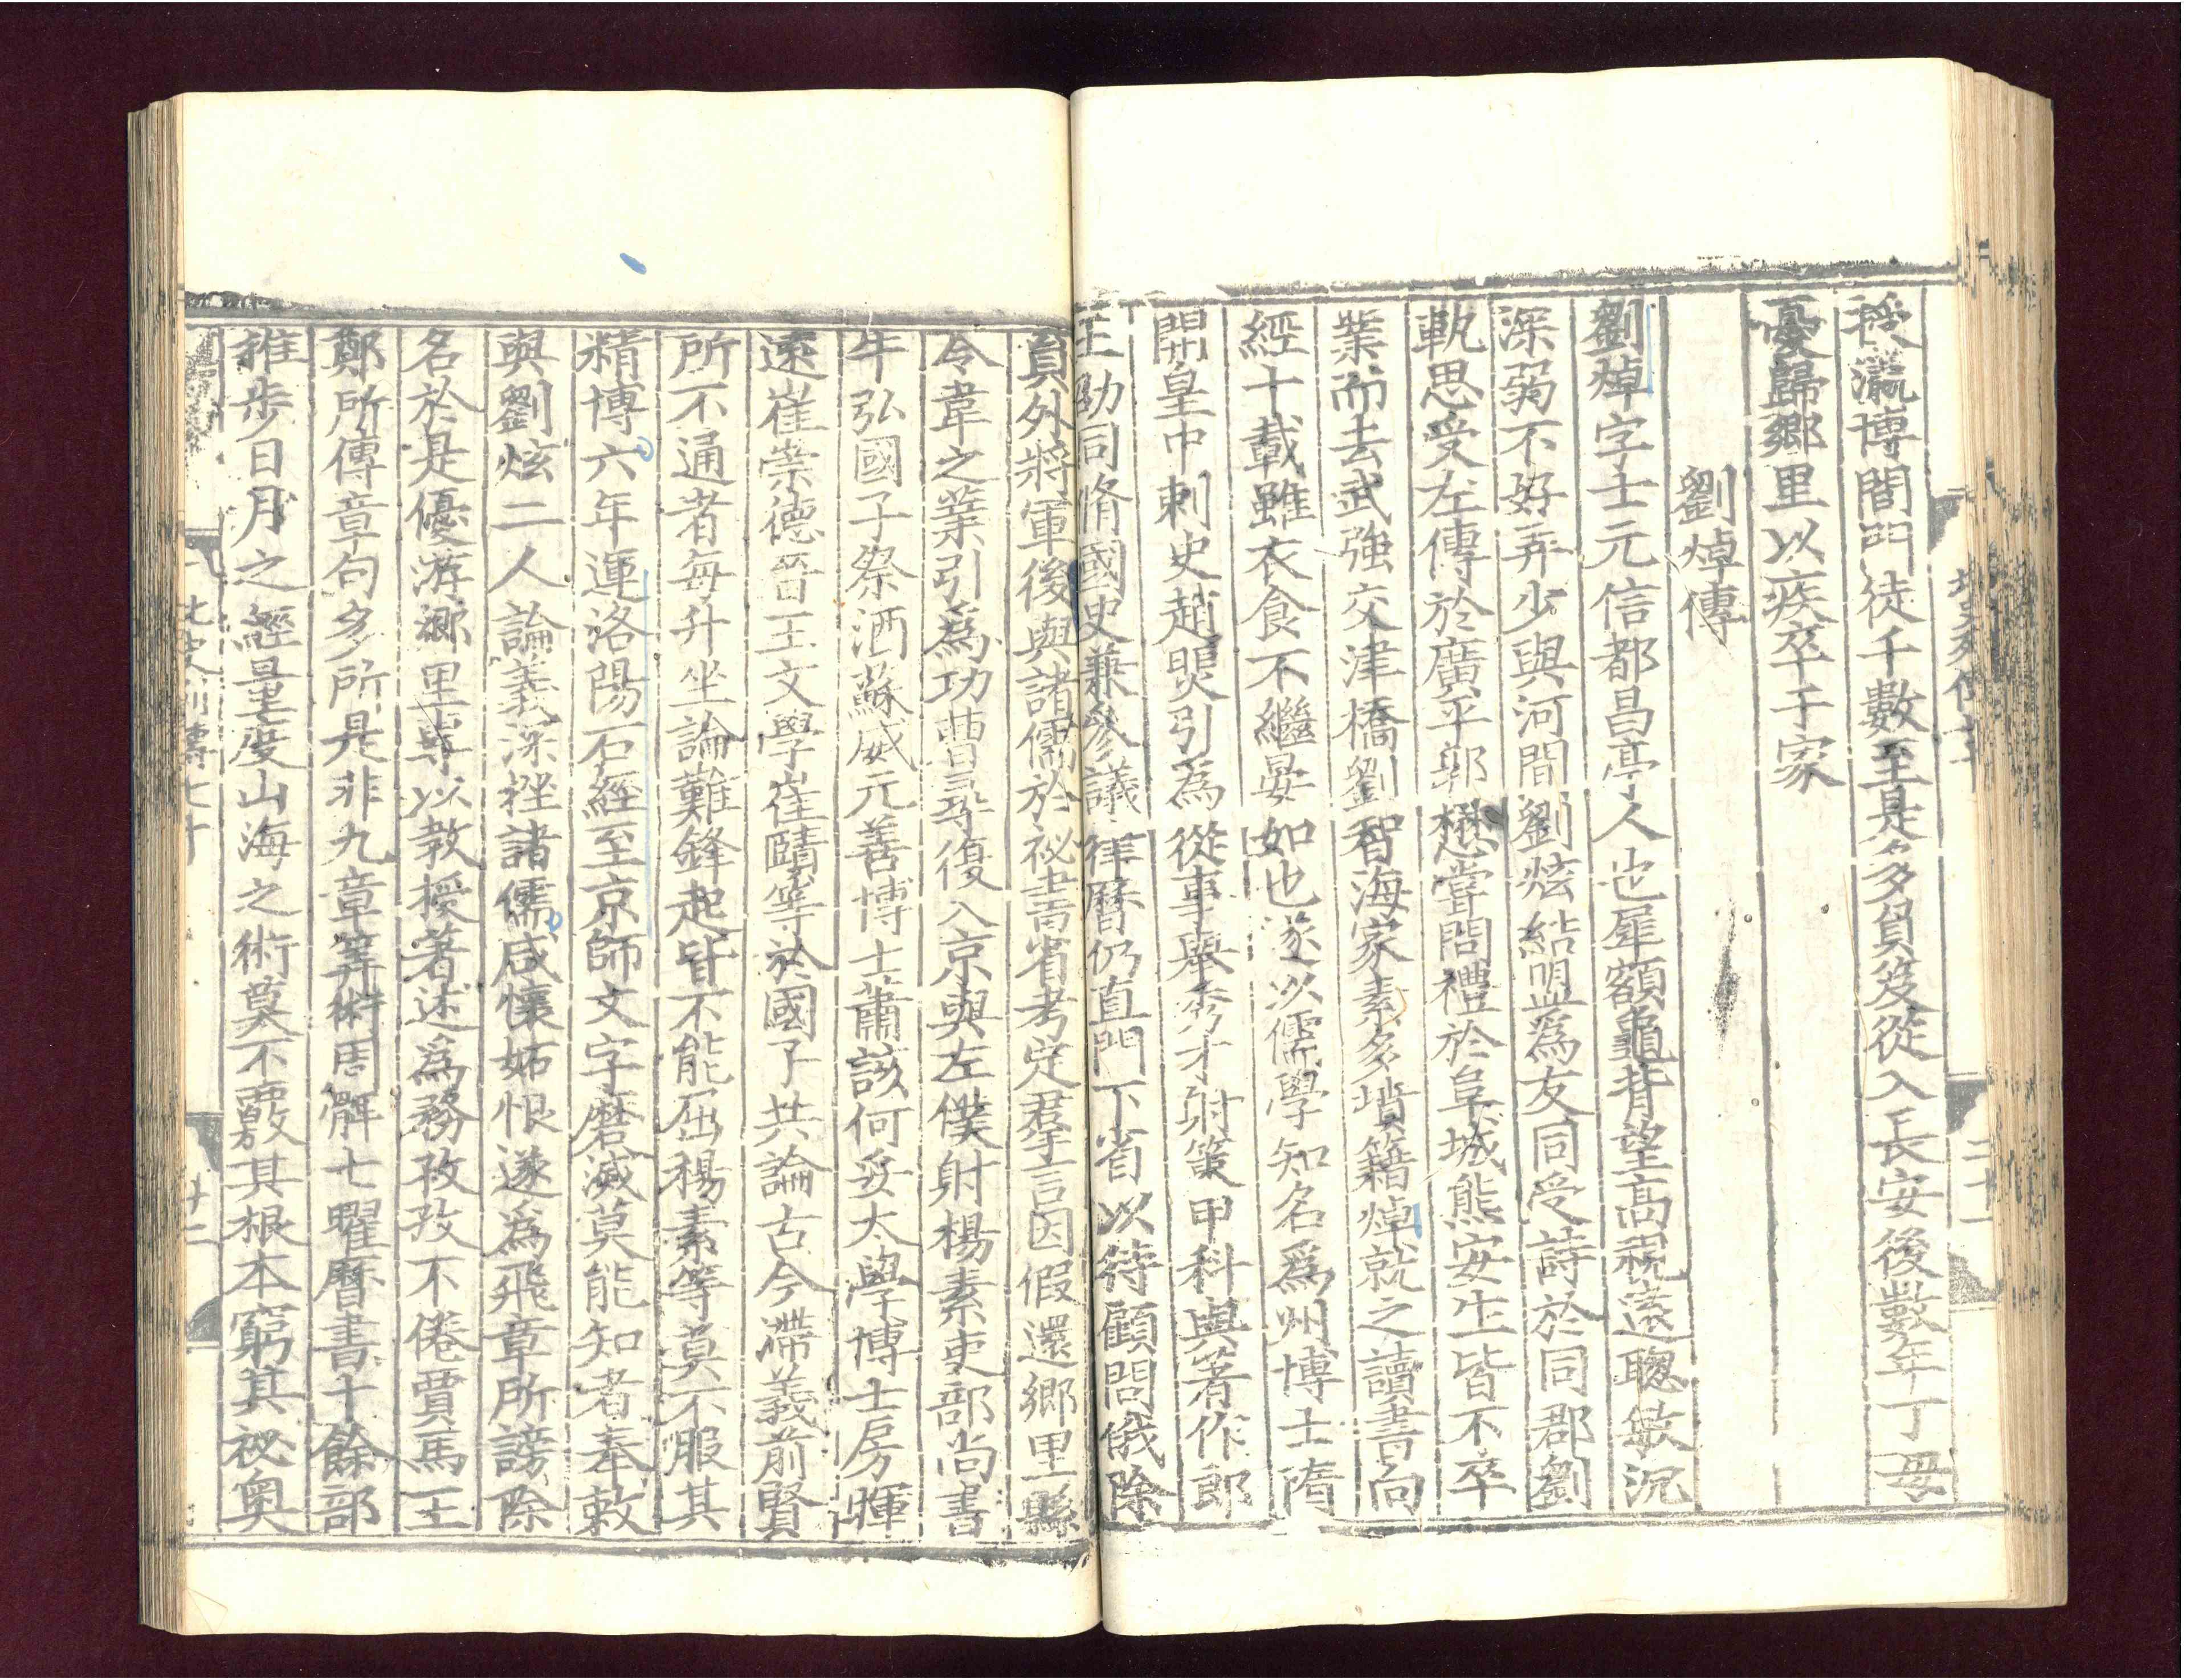 授瀛博間門徒千數至是多負笈從入長安後數年丁母
憂歸郷里以疾卒于家
劉焯傳
劉焯字士元信都昌亭人也犀額龜背望高視遠聰敏沉
深弱不好弄少與河間劉炫結盟爲友同受詩於同郡劉
軌思受左傳於廣平郭懋嘗問禮於阜城熊安生皆不卒
業而去武強交津橋劉智海家素多墳籍焯就之讀書向
經十載雖衣食不繼晏如也遂以儒學知名爲州博士隋
開皇中刺史趙煚引爲從事舉秀才射策甲科與著作郎
王劭同脩國史兼參議律曆仍直門下省以待顧問俄除
員外將軍後與諸儒於祕書省考定羣言因假還郷里縣
令韋之業引爲功曹尋復入京與左僕射楊素吏部尚書
牛弘國子祭酒蘇威元善博士蕭該何妥太學博士房暉
遠崔崇德晉王文學崔賾等於國子共論古今滯義前賢
所不通者每升坐論難鋒起皆不能屈楊素等莫不服其
精博六年運洛陽石經至京師文字磨滅莫能知者奉敕
與劉炫二人論義深挫諸儒咸懷妬恨遂爲飛章所謗除
名於是優游郷里專以教授著述爲務孜孜不倦賈馬王
鄭所傳章句多所是非九章筭術周髀七曜曆書十餘部
推步日月之經量度山海之術莫不覈其根本窮其祕奥
北史列傳七十
廿二